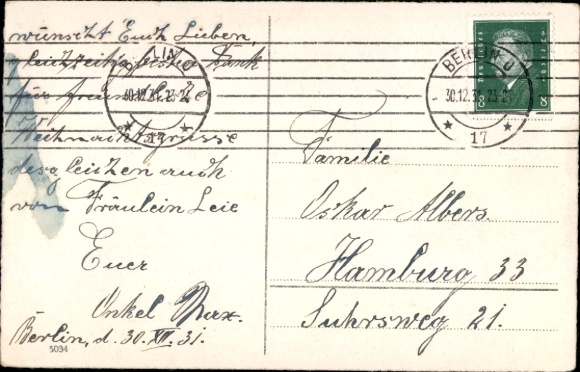 wünscht Euch Lieben,
gleichzeitig Dank
für freundliche
Weihnachtsgrüsse
desgleichen auch
von Fräulein Leie
Euer
Onkel Max.
Berlin, d. 30. XII. 31.
5034
BERLIN O
30.12.31.23-24
17
BERLIN O
30.12.31.23-24
17
8 8
Familie
Oskar Albers.
Hamburg 33
Suhrsweg 21.